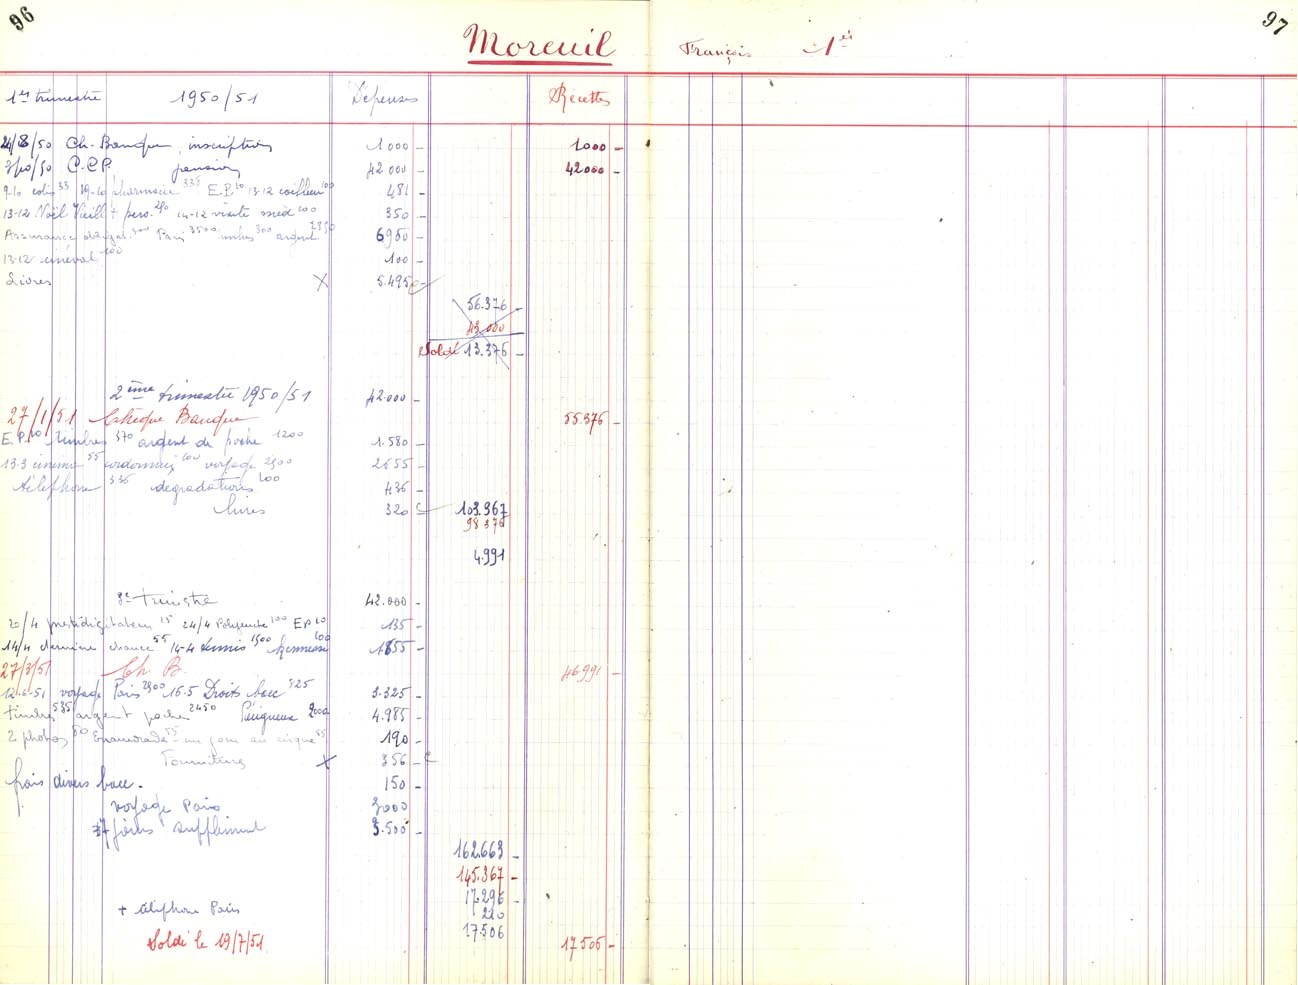 96
97
Moreuil François 1er
1er trimestre 1950/51 Dépenses Recettes
24/8/50 Ch. Banque inscription 1000 - 1000 -
3/10/50 C.C.P. pension 42000 - 42000 -
9-10 colis 33 19-10 pharmacie 338 E.P. 10 13-12 coiffeur 100 481 -
13-12 Noël Vieill + pers. 250 14-12 visite méd 100 350 -
Assurance obligat. Paris 3500 timbres 300 argent 6950 -
13-12 cinéval 100 100 -
Livres X 5.495 -
56.376 -
43.000
Solde 13.376 -
2ème trimestre 1950/51 42.000 -
27/1/51 Chèque Banque 55.376 -
E.P. 10 timbres 370 argent de poche 1200 1.580 -
13.3 cinéma 55 cordonnier 100 voyage 2500 2655 -
téléphone 336 dégradations 100 436 -
livres 320 c 103.367
98 376
4.991
3e trimestre 42.000 -
20/4 prestidigitateur 25 24/4 Polyeucte 100 EP 10 135 -
14/4 dernière chance 55 14-4 tennis 1500 Kermesse 100 1655 -
27/3/51 Ch. B. 46.991 -
12-5-51 voyage Paris 2800 16.5 Droits bacc 525 3.325 -
timbres 535 argent poche 2450 Périgueux 2000 4.985 -
2 photos 80 Enamorada 55 un jour au cirque 55 190 -
Fournitures X 356 - c
frais divers bacc. 150 -
voyage Paris 3000
7 jours supplément 3.500 -
162.663 -
145.367 -
17.296 -
+ téléphone Paris 210
17.506
Soldé le 19/7/51 17506 -